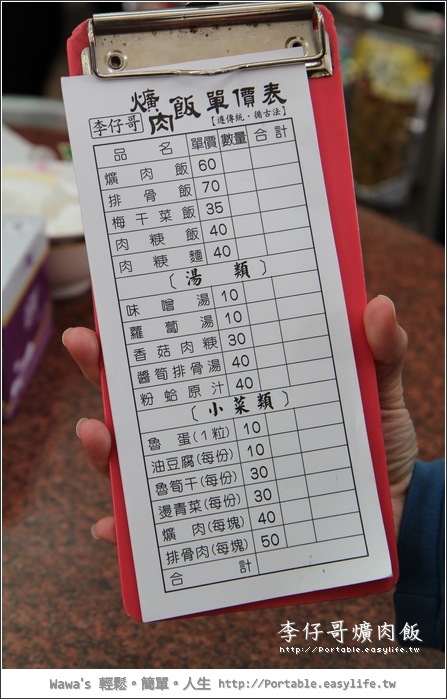 爌肉飯單價表
李仔哥【遵傳統·循古法】
品名 單價 數量 合計
爌肉飯 60
排骨飯 70
梅干菜飯 35
肉粳飯 40
肉粳麵 40
〔湯類〕
味噌湯 10
蘿蔔湯 10
香菇肉粳 30
醬筍排骨湯 40
粉蛤原汁 40
〔小菜類〕
魯蛋(1粒) 10
油豆腐(每份) 10
魯筍干(每份) 30
燙青菜(每份) 30
爌肉(每塊) 40
排骨肉(每塊) 50
合計
李仔哥爌肉飯
http://Portable.easylife.tw
Wawa's 輕鬆。簡單。人生 http://Portable.easylife.tw